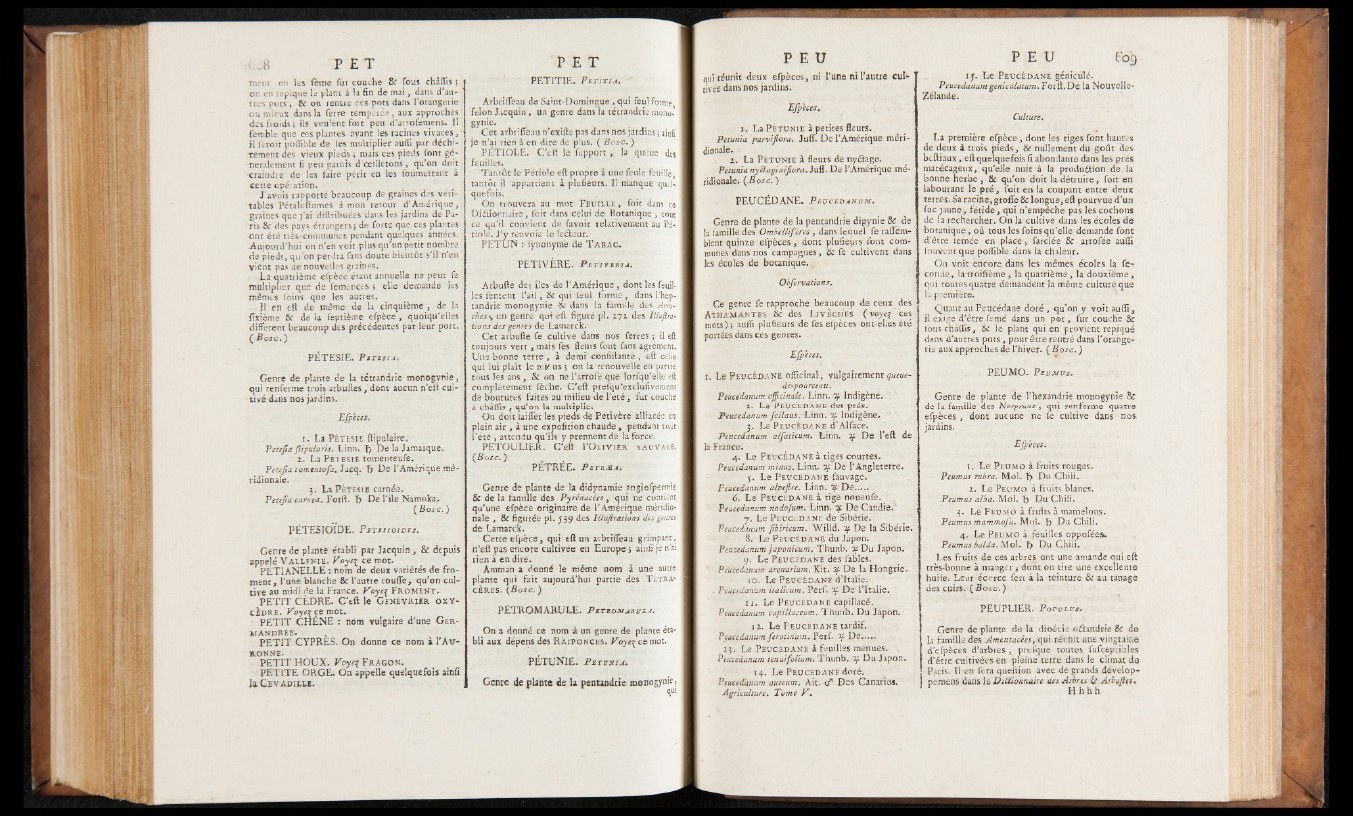 608 PET
ment on les sème sur couche & sous châssis ;
on en repique le plant à la fin de mai, dans d'au-
tres pots, & on rentre ces pots dans l'orangerie
ou mieux dans la serre tempérée, aux approches
des froids ; ils veulent fort peu d'arrosemens. Il
semble que ces plantes ayant les racines vivaces,
il seroit possible de les multiplier aussi par déchi-
rement des vieux pieds ; mais ces pieds sont gé-
néralement si peu garnis d'œilletons, qu'on doit
craindre de les faire périr en les soumettant à
cette opération.
J'avois rapporté beaucoup de graines des véri-
tables Pétalostomes à mon retour d'Amérique,
graines que j'ai distribuées dans les jardins de Pa-
ris & des pays étrangers ; de sorte que ces plantes
ont été très-communes pendant quelques années.
Aujourd'hui on n'en voit plus qu'un petit nombre
de pieds, qu'on perdra sans doute bientôt s'il n'en
vient pas de nouvelles graines.
La quatrième espèce étant annuelle ne peut se
multiplier que de semences ; elle demande les
mêmes soins que les autres.
Il en est de même de la cinquième, de la
sixième & de la septième espèce, quoiqu'elles
diffèrent beaucoup des précédentes par leur port.
(Bosc.)
PÉTESIE. PETESIA.
Genre de plante de la tétrandrie monogynie,
qui renferme trois arbustes, dont aucun n'est cul-
tivé dans nos jardins.
Espèces.
1. La PÉTESIE stipulaire.
Petesia stipularis. Linn. ♄ De la Jamaïque.
2. La PÉTESIE tomenteuse.
Petesia tomentosa. Jacq. ♄ De l'Amérique mé-
ridionale.
3. La PÉTESIE carnée.
Petesia carnea. Forst. ♄ De l'île Namoka.
(Bosc.)
PÉTESIOÏDE. PETESIOIDES.
Genre de plante établi par Jacquin, & depuis
appelé VALLENIE. Voyez ce mot.
PETIANELLE : nom de deux variétés de fro-
ment, l'une blanche & l'autre rousse, qu'on cul-
tive au midi de la France. Voyez FROMENT.
PETIT CÈDRE. C'est le GENÉVRIER OXY-
CÈDRE. Voyez ce mot.
PETIT CHÊNE : nom vulgaire d'une GER-
MANDRÉE.
PETIT CYPRÈS. On donne ce nom à l'AU-
RONNE.
PETIT HOUX. Voyez FRAGON.
PETITE ORGE. On appelle quelquefois ainsi
la CEVADILLE.
PET
PETITIE. PETITIA.
Arbrisseau de Saint-Domingue, qui seul forme,
selon Jacquin, un genre dans la tétrandrie mono-
gynie.
Cet arbrisseau n'existe pas dans nos jardins ; ainsi
je n'ai rien à en dire de plus. (Bosc.)
PÉTIOLE. C'est le support, la queue des
feuilles.
Tantôt le Pétiole est propre à une seule feuille,
tantôt il appartient à plusieurs. Il manque quel-
quefois.
On trouvera au mot FEUILLE, soit dans ce
Dictionnaire, soit dans celui de Botanique, tout
ce qu'il convient de savoir relativement au Pé-
tiole. J'y renvoie le lecteur.
PETUN : synonyme de TABAC.
PETIVÈRE. PETIVERIA.
Arbuste des îles de l'Amérique, dont les feuil-
les sentent l'ail, & qui seul forme, dans l'hep-
tandrie monogynie & dans la famille des Arro-
ches, un genre qui est figuré pl. 272 des Illustra-
tions des genres de Lamarck.
Cet arbuste se cultive dans nos serres ; il est
toujours vert, mais ses fleurs sont sans agrément.
Une bonne terre, à demi consistante, est celle
qui lui plaît le mieux ; on la renouvelle en partie
tous les ans, & on ne l'arrose que lorsqu'elle est
complètement sèche. C'est presqu'exclusivement
de boutures faites au milieu de l'été, sur couche
à châssis, qu'on la multiplie.
On doit laisser les pieds de Petivère alliacée en
plein air, à une exposition chaude, pendant tout
l'été, attendu qu'ils y prennent de la force.
PETOULIER. C'est l'OLIVIER SAUVAGE.
(Bosc.)
PÉTRÉE. PETRÆA.
Genre de plante de la didynamie angiospermie
& de la famille des Pyrénacées, qui ne contient
qu'une espèce originaire de l'Amérique méridio-
nale, & figurée pl. 539 des Illustrations des genres
de Lamarck.
Cette espèce, qui est un arbrisseau grimpant,
n'est pas encore cultivée en Europe ; ainsi je n'ai
rien à en dire.
Amman a donné le même nom à une autre
plante qui fait aujourd'hui partie des TÉTRA-
CÈRES. (Bosc.)
PÉTROMARULE. PETROMARULA.
On a donné ce nom à un genre de plante éta-
bli aux dépens des RAIPONCES. Voyez ce mot.
PÉTUNIE. PETUNIA.
Genre de plante de la pentandrie monogynie,
qui
PEU
qui réunit deux espèces, ni l'une ni l'autre cul-
tivée dans nos jardins.
Espèces.
1. La PÉTUNIE à petites fleurs.
Petunia parviflora. Juss. De l'Amérique méri-
dionale.
2. La PÉTUNIE à fleurs de nyctage.
Petunia nyctaginiflora. Juss. De l'Amérique mé-
ridionale. (Bosc.)
PEUCÉDANE. PEUCEDANUM.
Genre de plante de la pentandrie digynie & de
la famille des Ombellifères, dans lequel se rassem-
blent quinze espèces, dont plusieurs sont com-
munes dans nos campagnes, & se cultivent dans
les écoles de botanique.
Observations.
Ce genre se rapproche beaucoup de ceux des
ATHAMANTES & des LIVÈCHES (voyez ces
mots) ; aussi plusieurs de ses espèces ont-elles été
portées dans ces genres.
Espèces.
1. Le PEUCÉDANE officinal, vulgairement queue-
de-pourceau.
Peucedanum officinale. Linn. ♃ Indigène.
2. Le PEUCÉDANE des prés.
Peucedanum silaus. Linn. ♃ Indigène.
3. Le PEUCÉDANE d'Alsace.
Peucedanum alsaticum. Linn. ♃ De l'est de
la France.
4. Le PEUCÉDANE à tiges courtes.
Peucedanum minus. Linn. ♃ De l'Angleterre.
5. Le PEUCÉDANE sauvage.
Peucedanum alpestre. Linn. ♃ De.....
6. Le PEUCÉDANE à tige noueuse.
Peucedanum nodosum. Linn. ♃ De Candie.
7. Le PEUCÉDANE de Sibérie.
Peucedanum sibiricum. Willd. ♃ De la Sibérie.
8. Le PEUCÉDANE du Japon.
Peucedanum japonicum. Thunb. ♃ Du Japon.
9. Le PEUCÉDANE des sables.
Peucedanum arenarium. Kit. ♃ De la Hongrie.
10. Le PEUCÉDANE d'Italie.
Peucedanum italicum. Pers. ♃ De l'Italie.
11. Le PEUCÉDANE capillacé.
Peucedanum capillaceum. Thunb. Du Japon.
12. Le PEUCÉDANE tardif.
Peucedanum serotinum. Pers. ♃ De.....
13. Le PEUCÉDANE à feuilles menues.
Peucedanum tenuifolium. Thunb. ♃ Du Japon.
14. Le PEUCEDANE doré.
Peucedanum aureum. Ait. ♂ Des Canaries.
Agriculture. Tome V.
PEU 609
15. Le PEUCÉDANE géniculé.
Peucedanum geniculatum. Forst. De la Nouvelle-
Zélande.
Culture.
La première espèce, dont les tiges sont hautes
de deux à trois pieds, & nullement du goût des
bestiaux, est quelquefois si abondante dans les prés
marécageux, qu'elle nuit à la production de la
bonne herbe, & qu'on doit la détruire, soit en
labourant le pré, soit en la coupant entre deux
terres. Sa racine, grosse & longue, est pourvue d'un
suc jaune, fétide, qui n'empêche pas les cochons
de la rechercher. On la cultive dans les écoles de
botanique, où tous les soins qu'elle demande sont
d'être semée en place, sarclée & arrosée aussi
souvent que possible dans la chaleur.
On voit encore dans les mêmes écoles la se-
conde, la troisième, la quatrième, la douzième,
qui toutes quatre demandent la même culture que
la première.
Quant au Peucédane doré, qu'on y voit aussi,
il exige d'être semé dans un pot, sur couche &
sous châssis, & le plant qui en provient repiqué
dans d'autres pots, pour être rentré dans l'orange-
rie aux approches de l'hiver. (Bosc.)
PEUMO. PEUMUS.
Genre de plante de l'hexandrie monogynie &
de la famille des Nerprune, qui renferme quatre
espèces, dont aucune ne se cultive dans nos
jardins.
Espèces.
1. Le PEUMO à fruits rouges.
Peumus rubra. Mol. ♄ Du Chili.
2. Le PEUMO à fruits blancs.
Peumus alba. Mol. ♄ Du Chili.
3. Le PEUMO à fruits à mamelons.
Peumus mammosa. Mol. ♄ Du Chili.
4. Le PEUMO à feuilles opposées.
Peumus boldu. Mol. ♄ Du Chili.
Les fruits de ces arbres ont une amande qui est
très-bonne à manger, dont on tire une excellente
huile. Leur écorce sert à la teinture & au tanage
des cuirs. (Bosc.)
PEUPLIER. POPULUS.
Genre de plante de la dioécie octandrie & de
la famille des Amentacées, qui réunit une vingtaine
d'espèces d'arbres, presque toutes susceptibles
d'être cultivées en pleine terre dans le climat de
Paris. Il en sera question avec de grands dévelop-
pemens dans le Dictionnaire des Arbres & Arbustes.
Hhhh